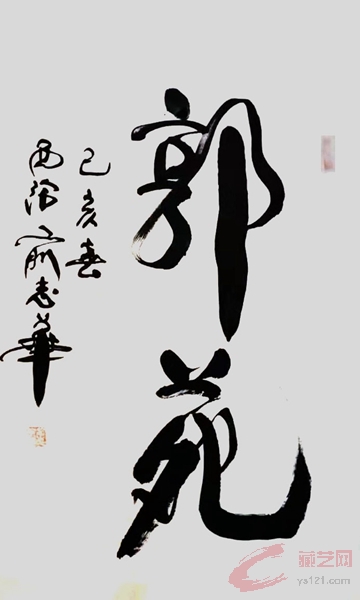 郭苑
己亥春
西泠俞志华
藏艺网
ys121.com